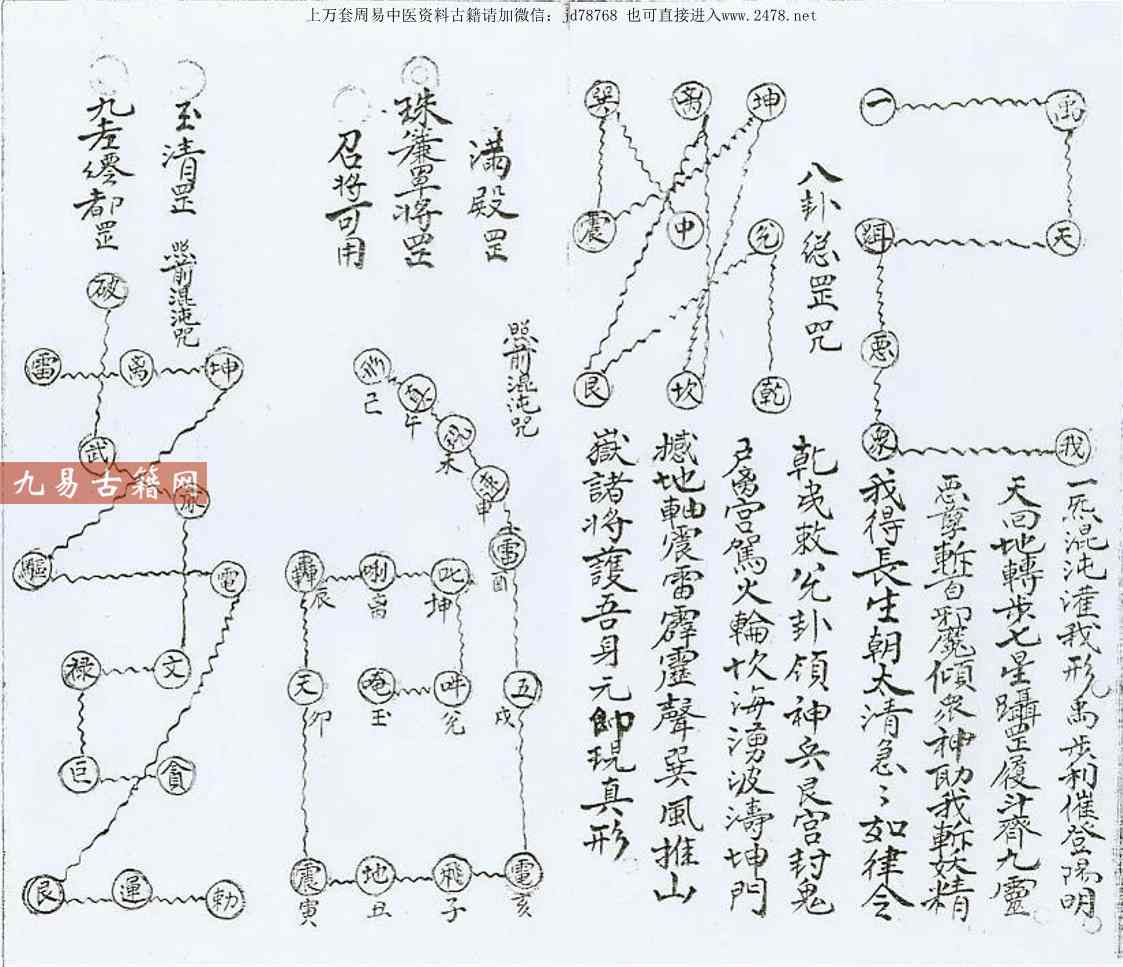 上万套周易中医资料古籍请加微信：jd78768 也可直接进入www.2478.net
一 禹
天
恶
眾 我
一炁混沌灌我形禹步利催登陽明
天回地轉步七星躡罡履斗齊九靈
惡孽斬首邪魔傾眾神助我斬妖精
我得長生朝太清急〻如律令
八卦總罡咒
巽 离 坤
震 中 兑
艮 坎 乾
乾 敕兑卦領神兵艮宫封鬼
户离宫駕火輪坎海湧波濤坤門
撼地軸震雷霹靂聲巽風推山
嶽諸將護吾身元帥現真形
满殿罡
照前混沌咒
珠簾罩將罡
召将可用
己
午
未
申
雷 酉
轟 辰 喇 离 叱 坤
天 卯 唵 玉 吽 兑 五 戌
震 寅 地 丑 飛 子 電 亥
玉清罡
照前混沌咒
九老僊都罡
破
雷 离 坤
武
廉
驅 電
禄 文
巨 貪
艮 運 勅
九易古籍网